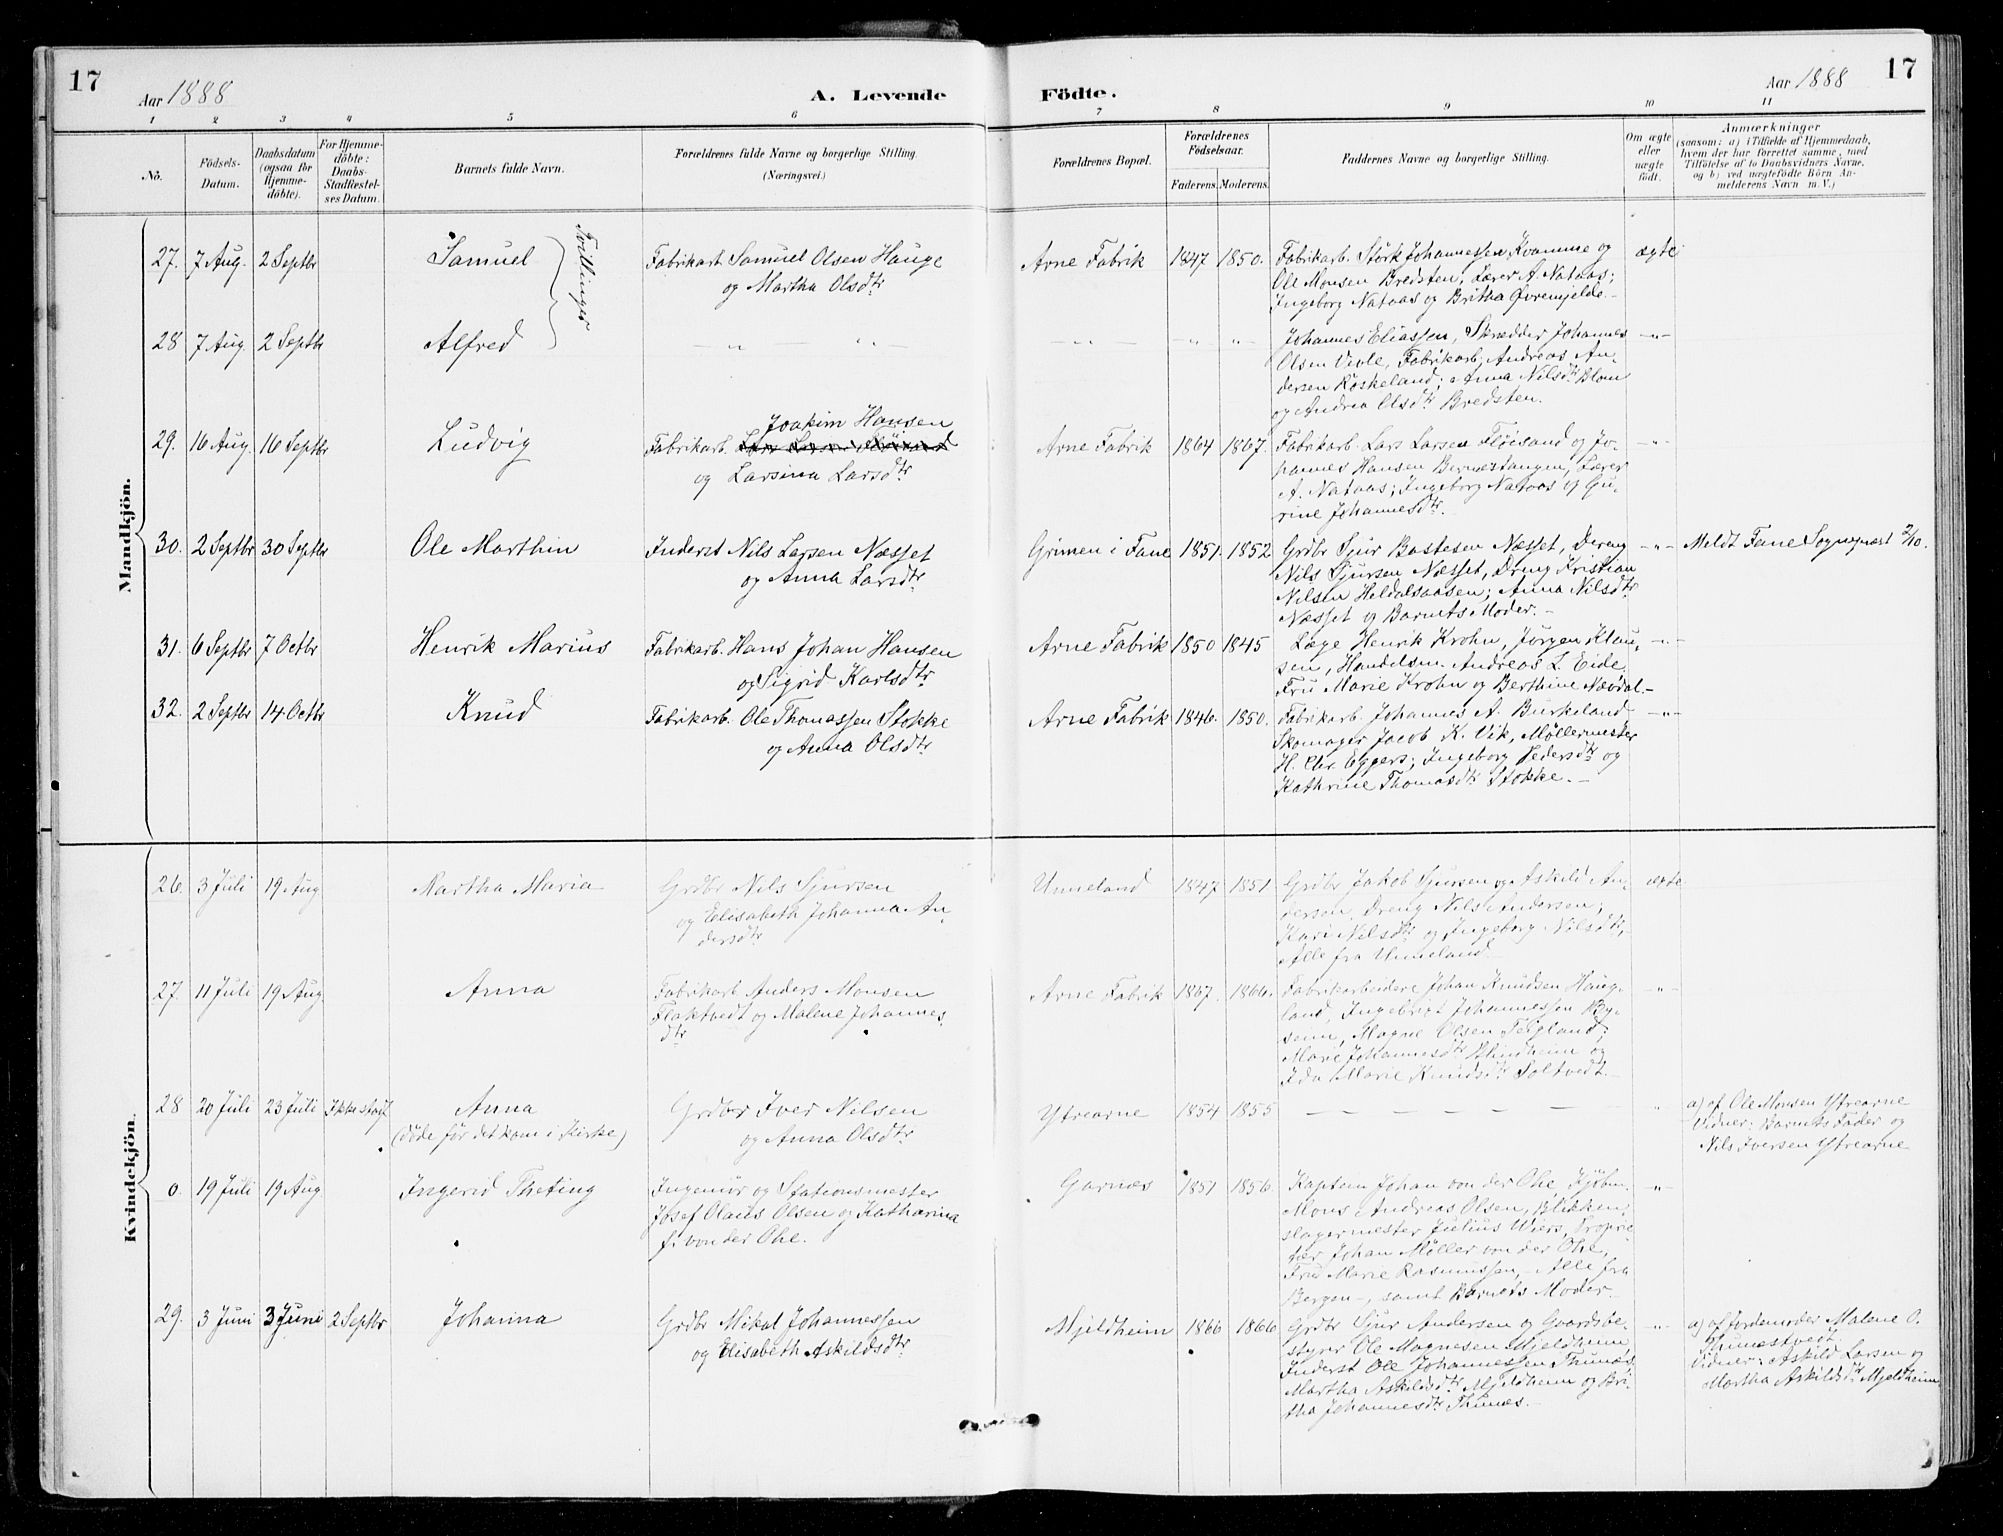 17
Aar 1888
A. Levende Födte.
Aar 1888
17
1 2 3 4 5 6 7 8 9 10 11
No.
Födsels-Datum.
Daabsdatum (ogsaa för Hjemmedöbte).
For Hjemmedöbte: Daabs-Stadfæstelses Datum.
Barnets fulde Navn.
Forældrenes fulde Navne og borgerlige Stilling. (Næringsvei.)
Forældrenes Bopæl.
Forældrenes Födselsaar.
Faderens. Moderens.
Faddernes Navne og borgerlige Stilling.
Om ægte eller uægte födt.
Anmærkninger
(saasom: a) i Tilfælde af Hjemmedaab, hvem der har forrettet samme, med Tilföielse af to Daabsvidners Navne, og b) ved uægtefödte Börn Anmelderens Navn m. V.)
Mandkjön.
27. 7 Aug. 2 Septbr Samuel Tvillinger
Fabrikarb. Samuel Olsen Hauge
og Martha Olsdtr
Arne Fabrik 1847 1850.
Fabrikarb. Störk Johannessen Kvamme og
Ole Monsen Bredsten, Lærer A. Nataas;
Ingeborg Nataas og Britha Øvremjelde.-
ægte
28 7 Aug. 2 Septbr Alfred
- " - " -
- " - " "
Johannes Eliassen, Skrædder Johannes
Olsen Vevle, Fabrikarb. Andreas An-
dersen Röskeland; Anna Nilsdtr Blom
og Andrea Olsdtr Bredsten.
-"-
29. 16 Aug. 16 Septbr Ludvig
Joakim Hansen
Fabrikarb.
og Larsina Larsdtr
Arne Fabrik 1864 1867.
Fabrikarb. Lars Larsen Fløisand og Jo-
hannes Hansen Bernestangen, Lærer
A. Nataas; Ingeborg Nataas og Gu-
rine Johannesdtr.
-"-
30. 2 Septbr 30 Septbr Ole Marthin
Inderst Nils Larsen Næsset
og Anna Larsdtr
Grimen i Fane 1851. 1852
Grdbr Sjur Bastesen Næsset, Dreng
Nils Sjursen Næsset, Dreng Kristian
Nilsen Heldalsaasen; Anna Nilsdtr
Næsset og Barnets Moder.-
-"- Meldt Fane Sognepræst 2/10.
31. 6 Septbr 7 Octbr Henrik Marius
Fabrikarb. Hans Johan Hansen
og Sigrid Karlsdtr
Arne Fabrik 1850 1845
Læge Henrik Krohn, Jørgen Klau-
sen, Handelsm. Andreas L. Eide
Fru Marie Krohn og Berthine Nævdal.-
-"-
32. 2 Septbr 14 Octbr Knud
Fabrikarb. Ole Thomassen Stokke
og Anna Olsdtr
Arne Fabrik 1846. 1850.
Fabrikarb. Johannes A. Burkeland
Skomager Jacob K. Vik, Møllermester
H. Chr. Eggers; Ingeborg Pedersdtr og
Kathrine Thomasdtr Stokke.-
-"-
Kvindekjön.
26. 3 Juli 19 Aug Martha Maria
Grdbr Nils Sjursen
og Elisabeth Johanna An-
dersdtr
Unneland 1847 1851
Grdbr Jakob Sjursen og Askild An-
dersen, Dreng Nils Andersen;
Kari Nilsdtr og Ingeborg Nilsdtr,
Alle fra Unneland.
ægte
27. 11 Juli 19 Aug Anna
Fabrikarb Anders Monsen
Flaktvedt og Malene Johannes
dtr
Arne Fabrik 1867. 1866.
Fabrikarbeidere Johan Knudsen Haug-
land, Ingebrigt Johannessen By-
seim, Magne Olsen Teigland;
Marie Johannesdtr Blindheim og
Ida Marie Knudsdtr Soltvedt.-
-"-
28 20 Juli 23 Juli Ikke stadf. Anna
(döde för det kom i Kirke)
Grdbr Iver Nilsen
og Anna Olsdtr
Ytrearne 1854 1855
- - - - - - -
"
a) af Ole Monsen Ytrearne
Vidner: Barnets Fader og
Nils Iversen Ytrearne
0. 19 Juli 19 Aug Ingerid Theting
Ingeniör og Stationsmester
Josef Olaus Olsen og Katharina
f. von der Ohe.
Garnæs 1851 1856.
Kaptein Johan von der Ohe, Kjøbm.
Mons Andreas Olsen, Blikken-
slagermester Julius Wiers, Proprie-
tær Johan Møller von der Ohe,
Fru Marie Rasmussen,- Alle fra
Bergen-, samt Barnets Moder.
-"-
29. 3 Juni 3 Juni 2 Septbr Johanna
Grdbr Mikal Johannessen
og Elisabeth Askildsdtr
Mjeldheim 1866 1866
Grdbr Sjur Andersen og Gaardsbe-
styrer Ole Magnesen Mjeldheim,
Inderst Ole Johannessen Thunæs,
Martha Askildsdtr Mjeldheim og Bri-
tha Johannesdtr Thunæs.-
-"-
a) af Jordemoder Malene O.
Thunestvedt
Vidner: Askild Larsen og
Martha Askildsdtr Mjeldheim.